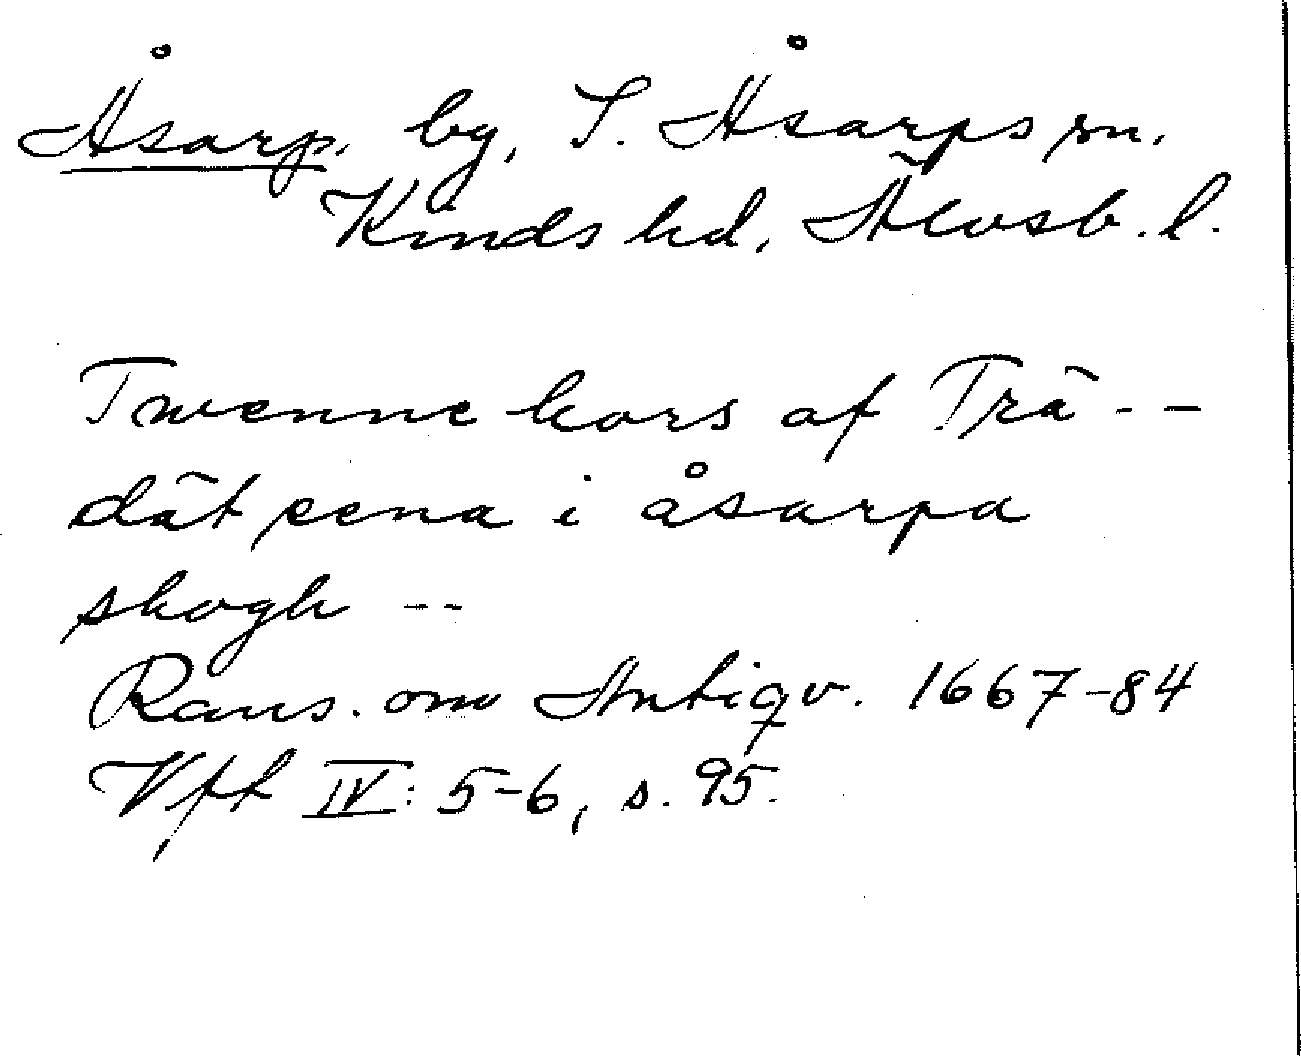 Åsarp, by, S. Åsarps sn.
Kinds hd, Älvsb. l.
Twenne kors af Trä - -
dät eena i åsarpa
skogh - -
Rans. om Antiqv. 1667-84
Vft IV: 5-6, s. 95.